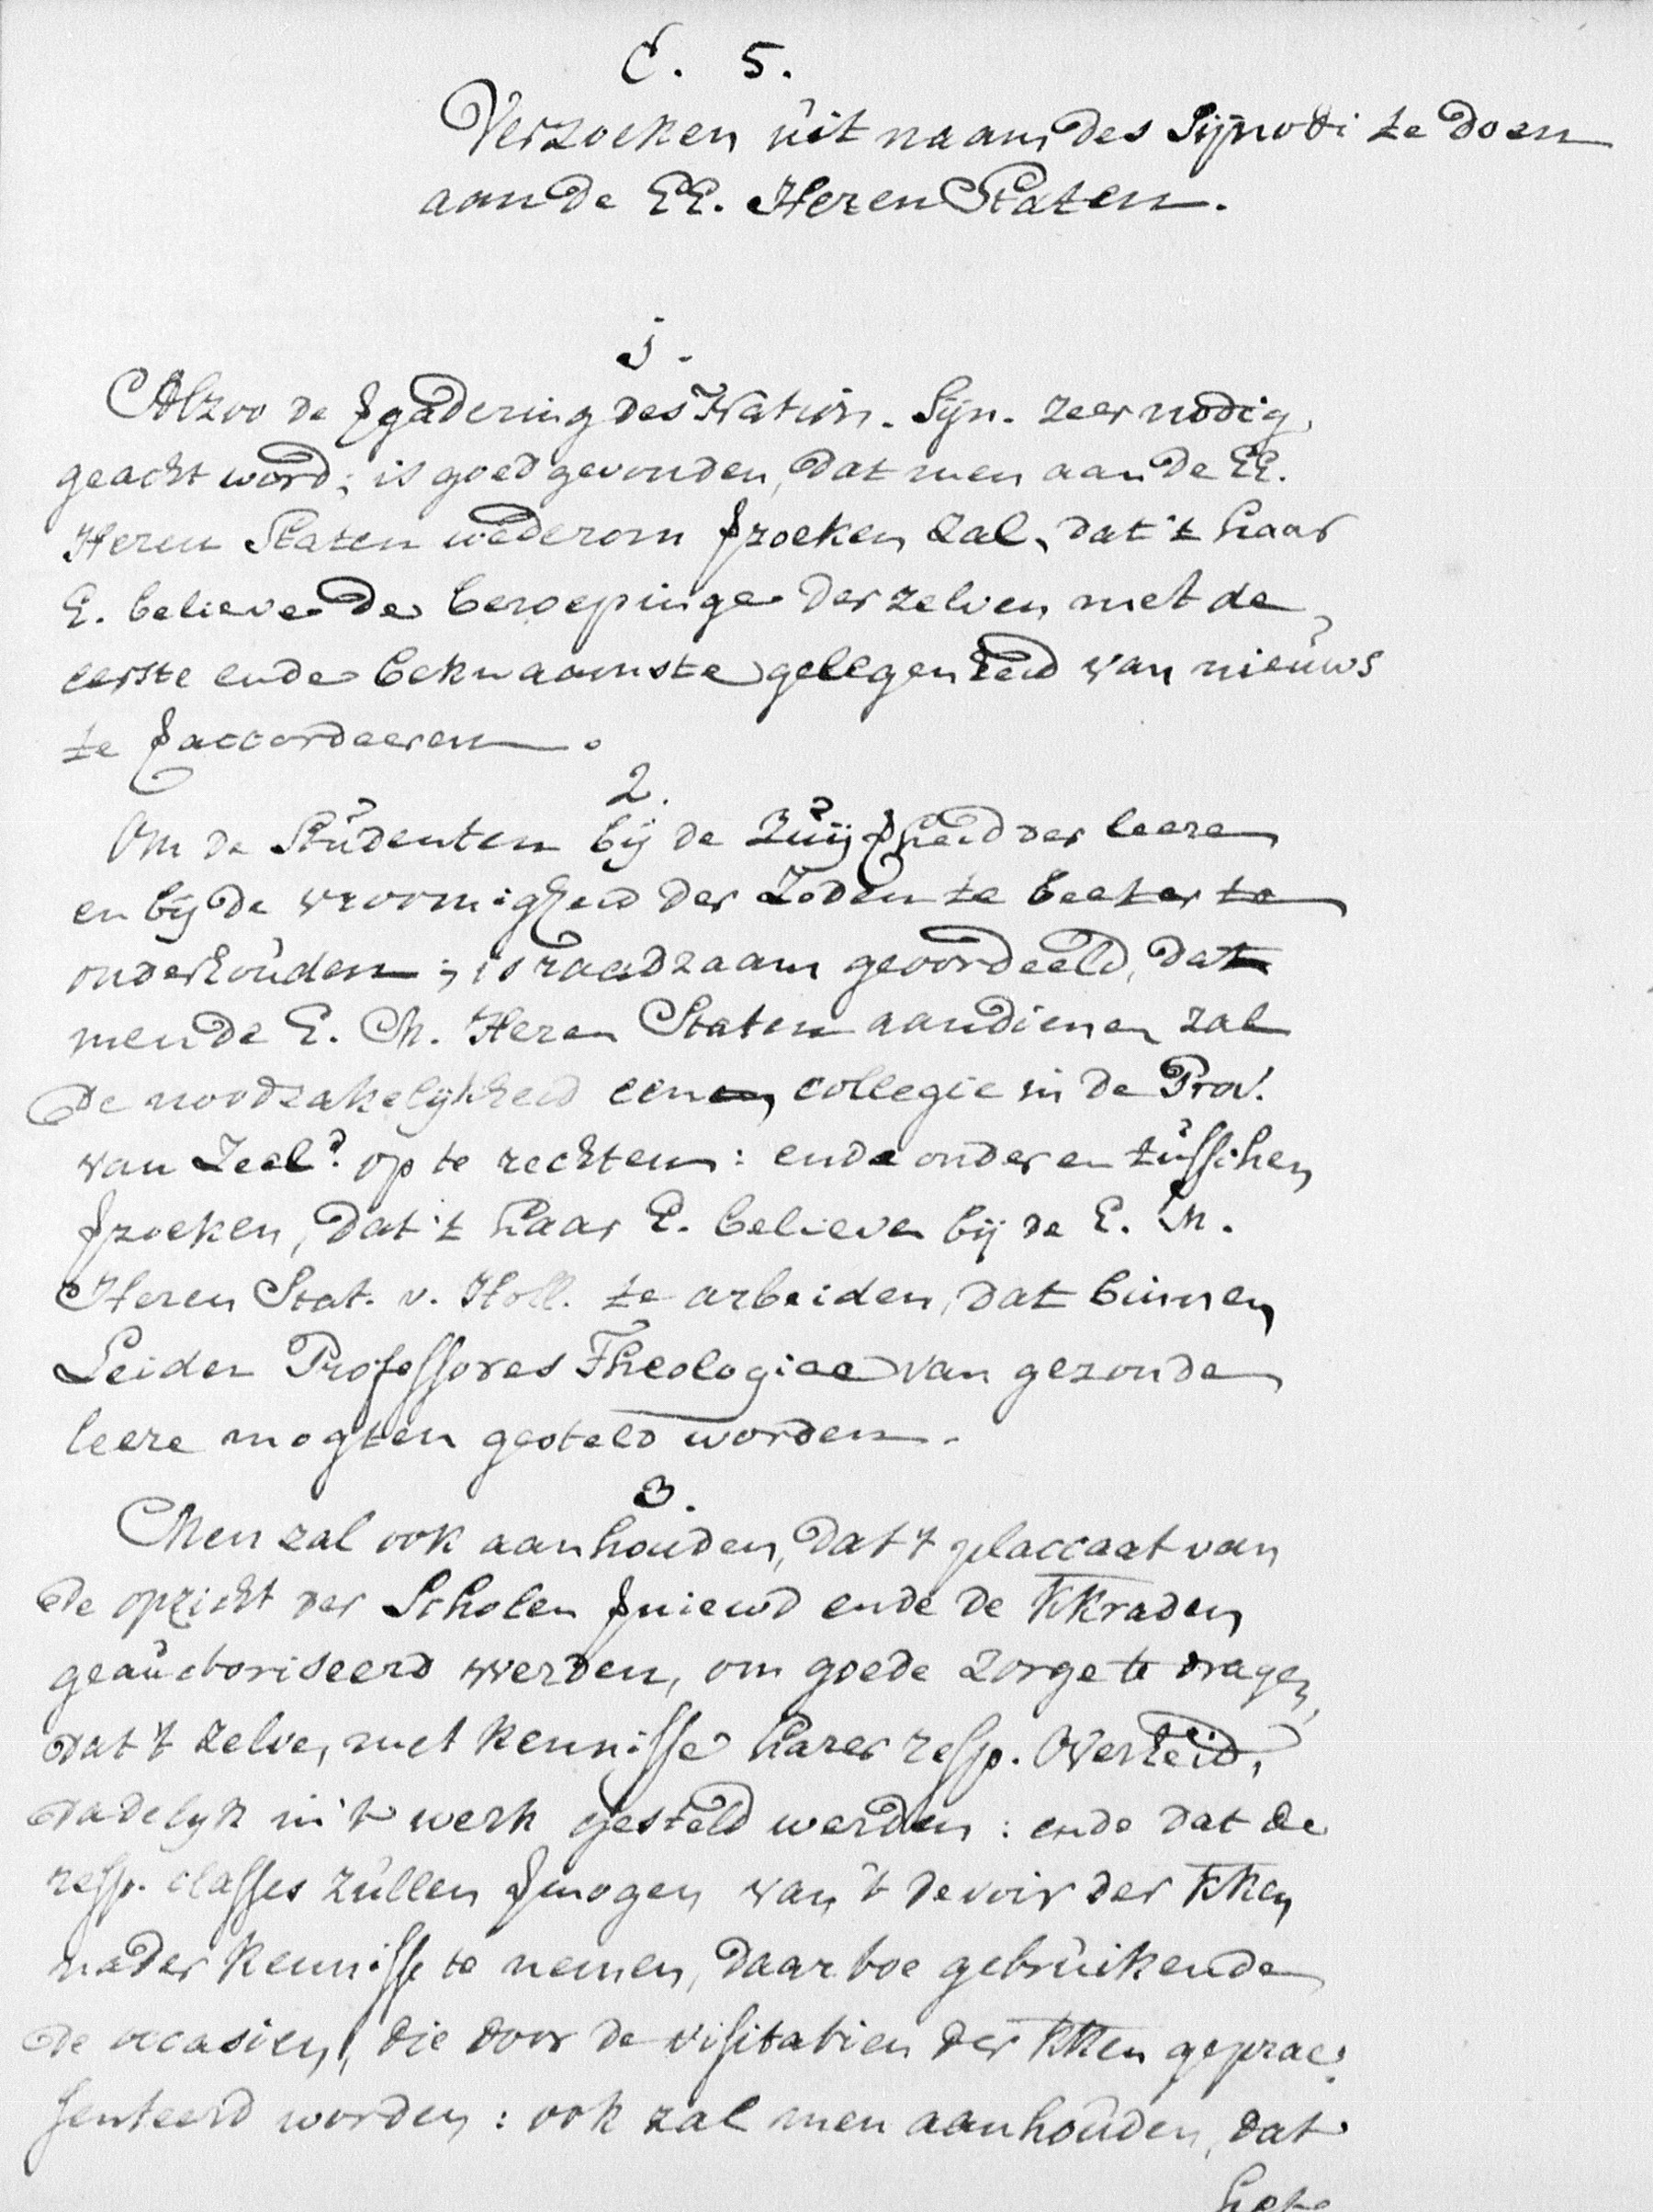 C. 5.
Verzoeken uit naam des Sijnodi te doen
aan de EE. Heren Staten.
1.
Alzoo de ꝟgadering des Nation. Sijn. zeer nodig
geacht word; is goed gevonden, dat men aan de EE.
Heren Staten wederom ꝟzoeken zal, dat 't haar
E. believe de beroepinge der zelven met de
eerste ende bekwaamste gelegenheid van nieuws
te ꝟaccordeeren.
2.
Om de Studenten bij de Zuijꝟheid der leere
en bij de vroomigheid der Zeden te beeter te
onderhouden; is raadzaam geoordeeld, dat
men de E. M. Heren Staten aandienen zal
de noodzakelijkheid een collegie in de Prov.
van Zeeld. op te rechten: ende onder en tusschen
ꝟzoeken, dat 't haar E. believe bij de E. M.
Heren Stat. v. Holl. te arbeiden, dat binnen
Leiden Professores Theologiae van gezonde
leere mogten gesteld worden.
3.
Men zal ook aanhouden, dat 't placcaat van
de opzicht der Scholen ꝟnieuwd ende de KKraden
geauctoriseerd werden, om goede zorge te dragen,
dat 't zelve, met kennisse harer resp. Overheid,
dadelijk in 't werk gesteld werden: ende dat de
resp. classes zullen ꝟmogen van 't devoir der KKen
nader kennisse te nemen, daar toe gebruikende
de occasien, die door de visitatien der KKen geprae:
senteerd worden: ook zal men aanhouden, dat